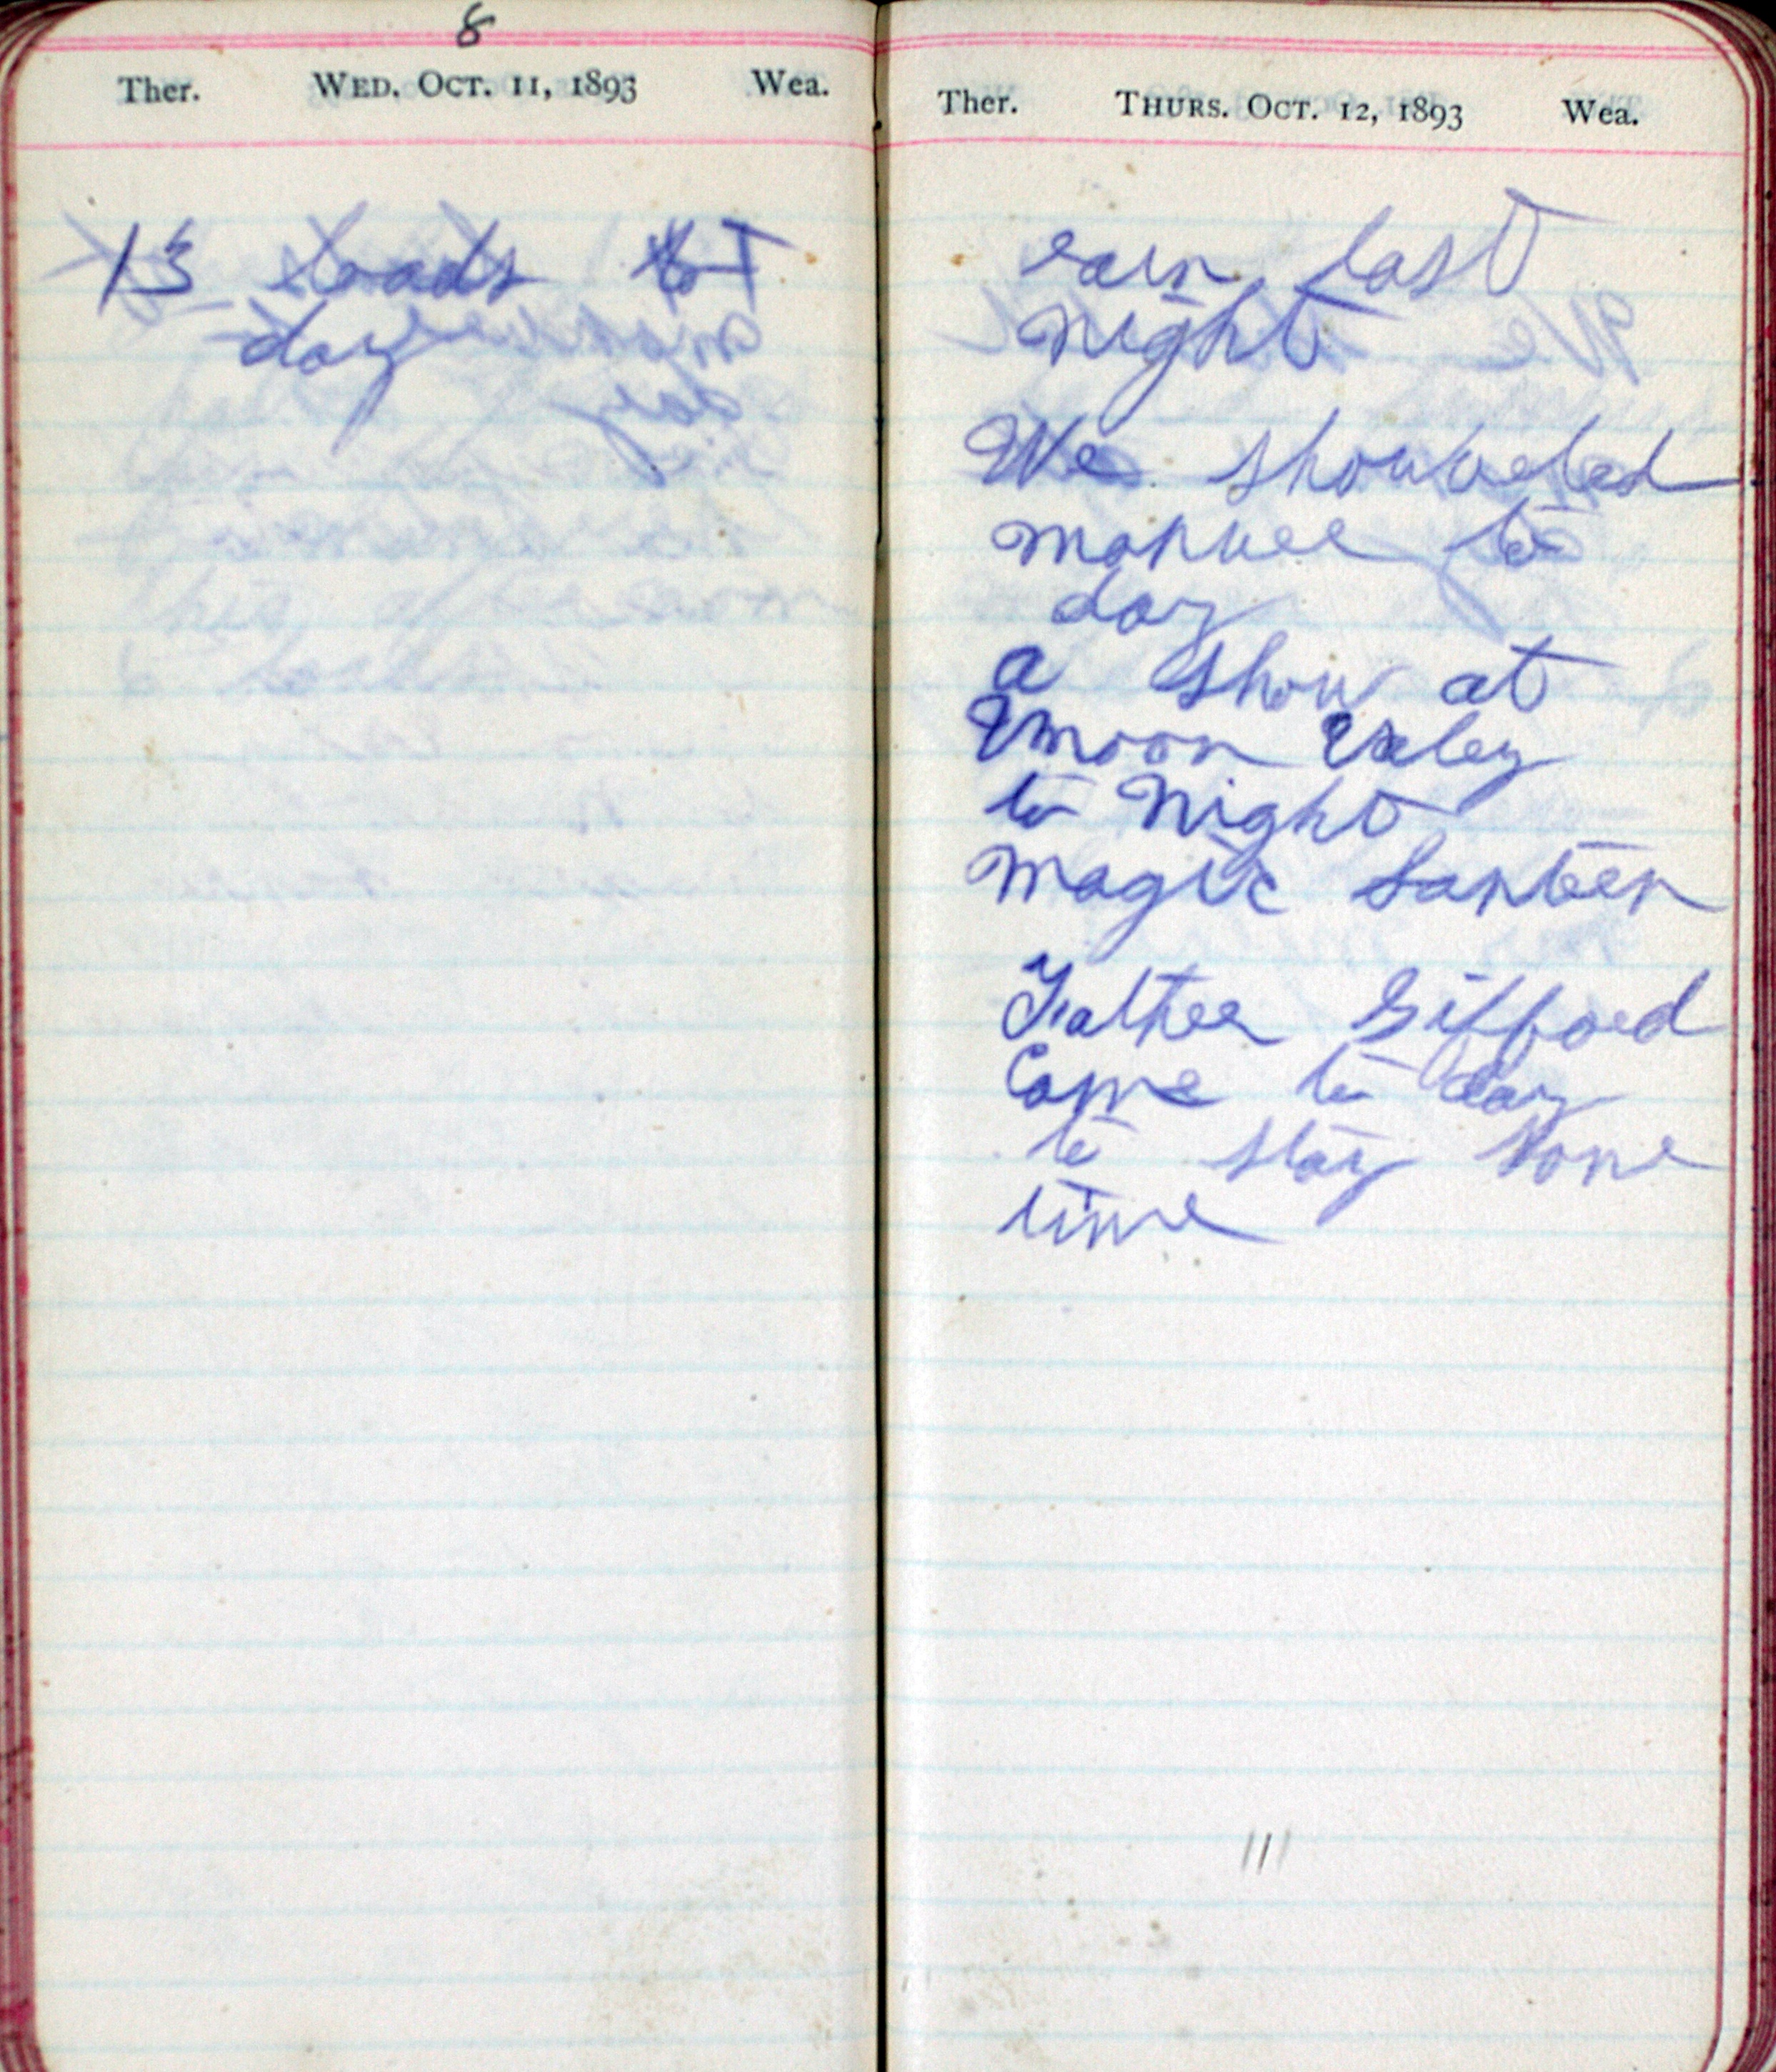 8
Ther. WED. OCT. 11, 1893 Wea.
13 loads to
day
Ther. THURS. OCT. 12, 1893 Wea.
rain last
night
We shouveled
manure to
day
a show at
Union Valey
to Night
Magic Lantern
Father Gifford
Came to day
to stay some
time
111